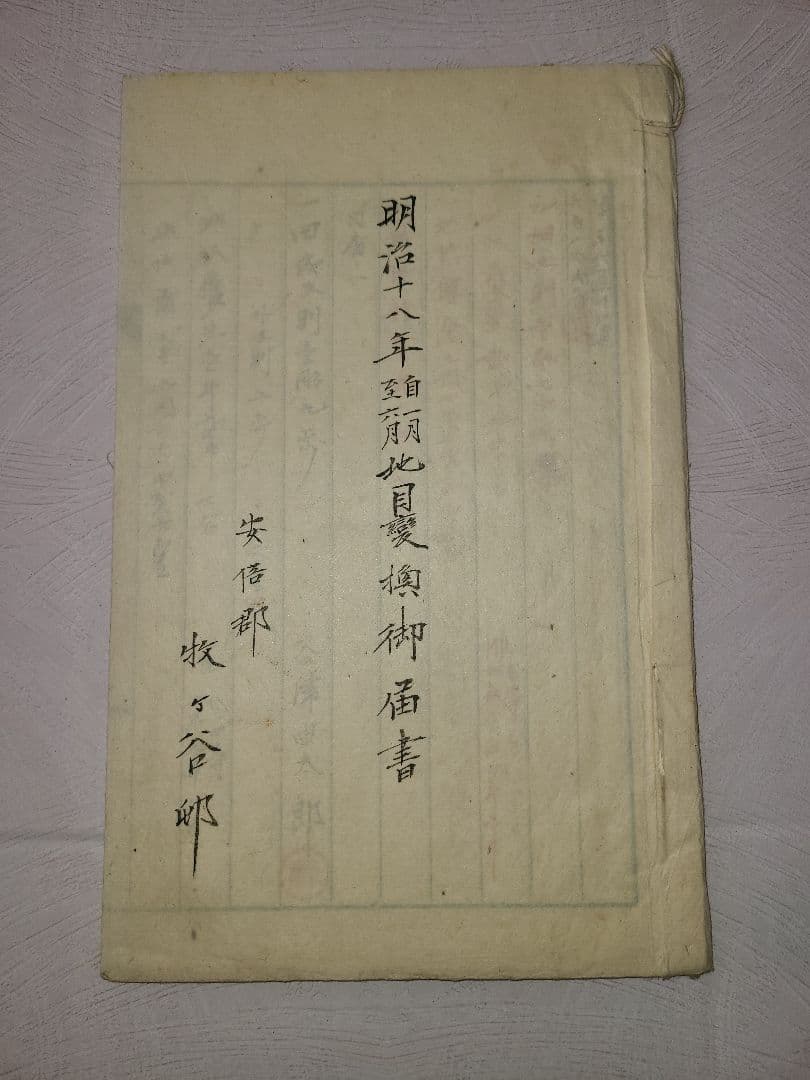 明治十八年自一月至六月地目變換御届書
安倍郡
牧ヶ谷邨